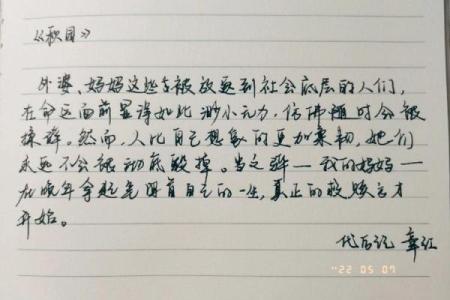 《秋园》
外婆、妈妈这些被放逐到社会底层的人们，
在命运面前显得如此渺小无力，仿佛随时会被
揉碎。然而，人比自己想象的更加柔韧，她们
永远不会被彻底毁掉。当之骅——我的妈妈——
在晚年拿起笔回首自己的一生，真正的救赎方才
开始。
代后记 章红
'22 05 07